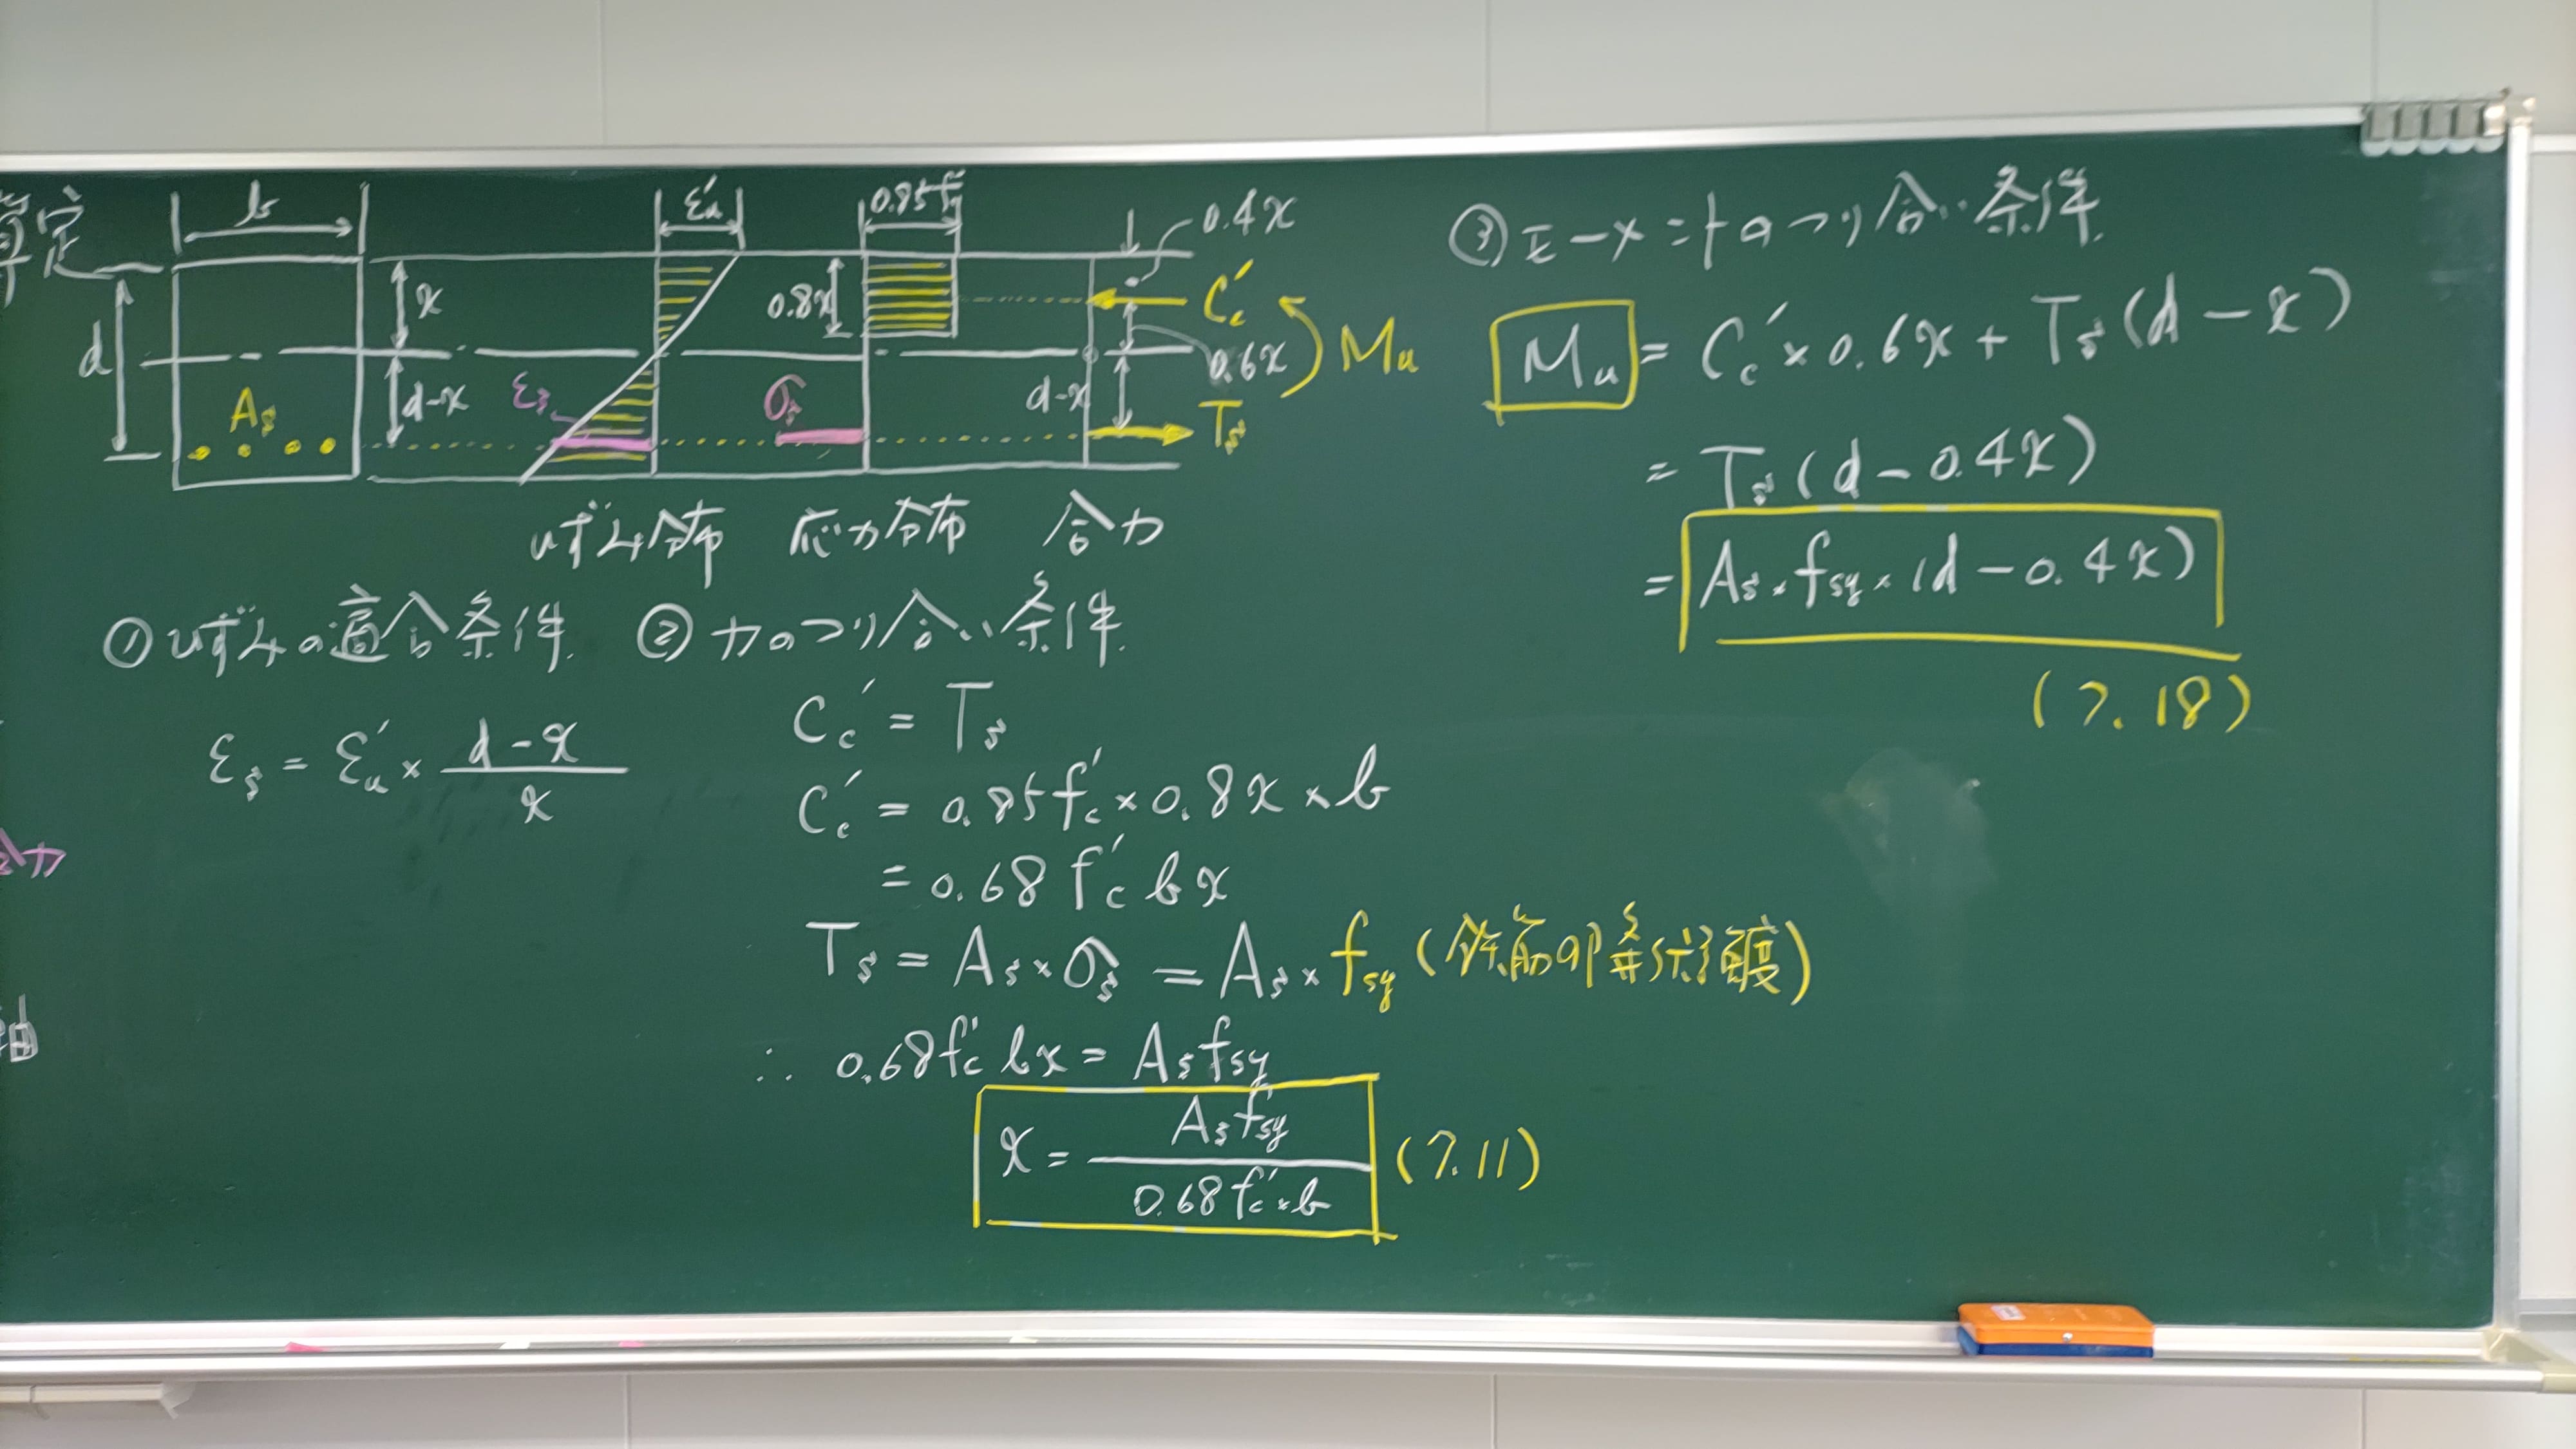 算定
b
ε'u
0.85f'c
0.4x
x
0.8x
C'c
d
0.6x
Mu
As
d-x
εs
σs
d-x
Ts
ひずみ分布 応力分布 合力
①ひずみの適合条件
εs = ε'u × (d-x)/x
合力
軸
②力のつり合い条件
C'c = Ts
C'c = 0.85f'c × 0.8x × b
= 0.68 f'c b x
Ts = As × σs = As × fsy (鉄筋の降伏強度)
∴ 0.68f'c b x = As fsy
x = As fsy / 0.68 f'c × b (7.11)
③モーメントのつり合い条件
Mu = C'c × 0.6x + Ts (d - x)
= Ts (d - 0.4x)
= As × fsy × (d - 0.4x)
(7.18)